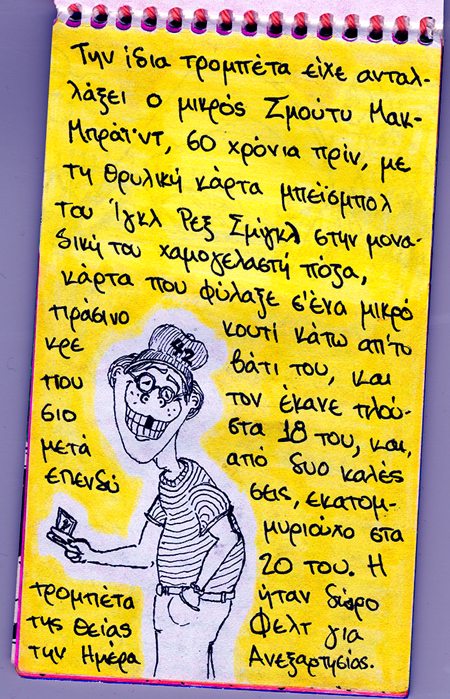 Την ίδια τρομπέτα είχε ανταλ-
λάξει ο μικρός Σμούτυ Μακ-
Μπράϊντ, 60 χρόνια πρίν, με
τη θρυλική κάρτα μπέϊσμπολ
του Ίγκλ Ρεξ Σμίγκλ στην μονα-
δική του χαμογελαστή πόζα,
κάρτα που φύλαξε σ'ένα μικρό
πράσινο κουτί κάτω απ'το
κρε βάτι του, και
που τον έκανε πλού-
σιο στα 18 του, και,
μετά από δυο καλές
επενδύ σεις, εκατομ-
μυριούχο στα
20 του. Η
τρομπέτα ήταν δώρο
της θείας Φελτ για
την Ημέρα Ανεξαρτησίας.
42